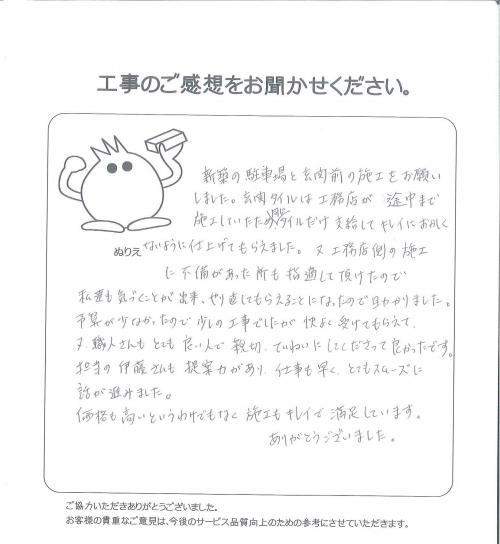 工事のご感想をお聞かせください。
新築の駐車場と玄関前の施工をお願い
しました。玄関タイルは工務店が 途中まで
施工していたためタイルだけ支給してキレイにおかしく
ないように仕上げてもらえました。又工務店側の施工
ぬりえ
に不備があった所も指摘して頂けたので
私達も気づくことが出来、やり直してもらえることになったので助かりました。
予算が少なかったので少しの工事でしたが 快よく受けてもらえて、
又、職人さんも とても 良い人で 親切、ていねいに してくださって良かったです。
担当の伊藤さんも 提案力があり、仕事も早く、とてもスムーズに
話が進みました。
価格も高いというわけでもなく 施工もキレイで満足しています。
ありがとうございました。
ご協力いただきありがとうございました。
お客様の貴重なご意見は、今後のサービス品質向上のための参考にさせていただきます。